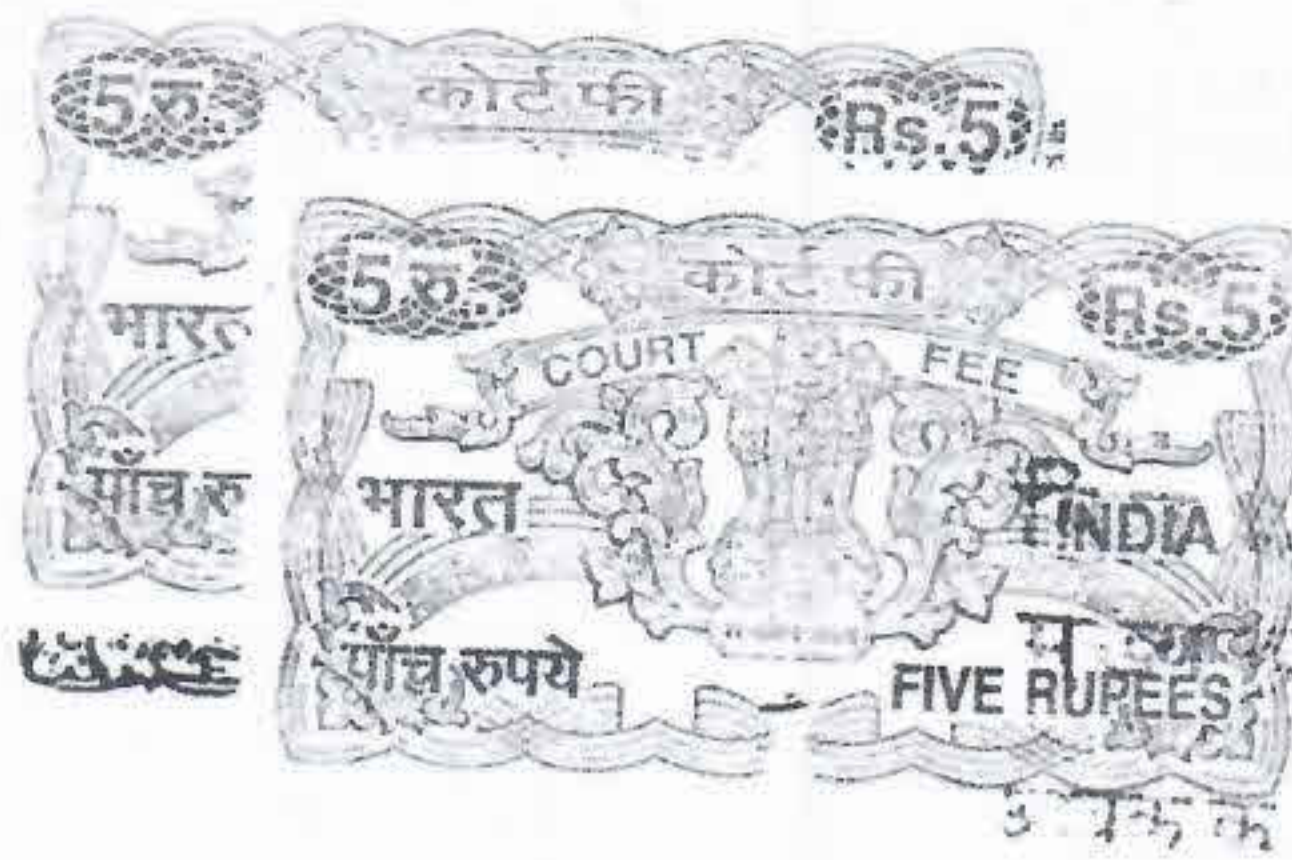 5 रु. कोर्ट फी Rs. 5
भारत
पाँच रु
5 रु. कोर्ट फी Rs. 5
COURT FEE
भारत INDIA
पाँच रुपये FIVE RUPEES